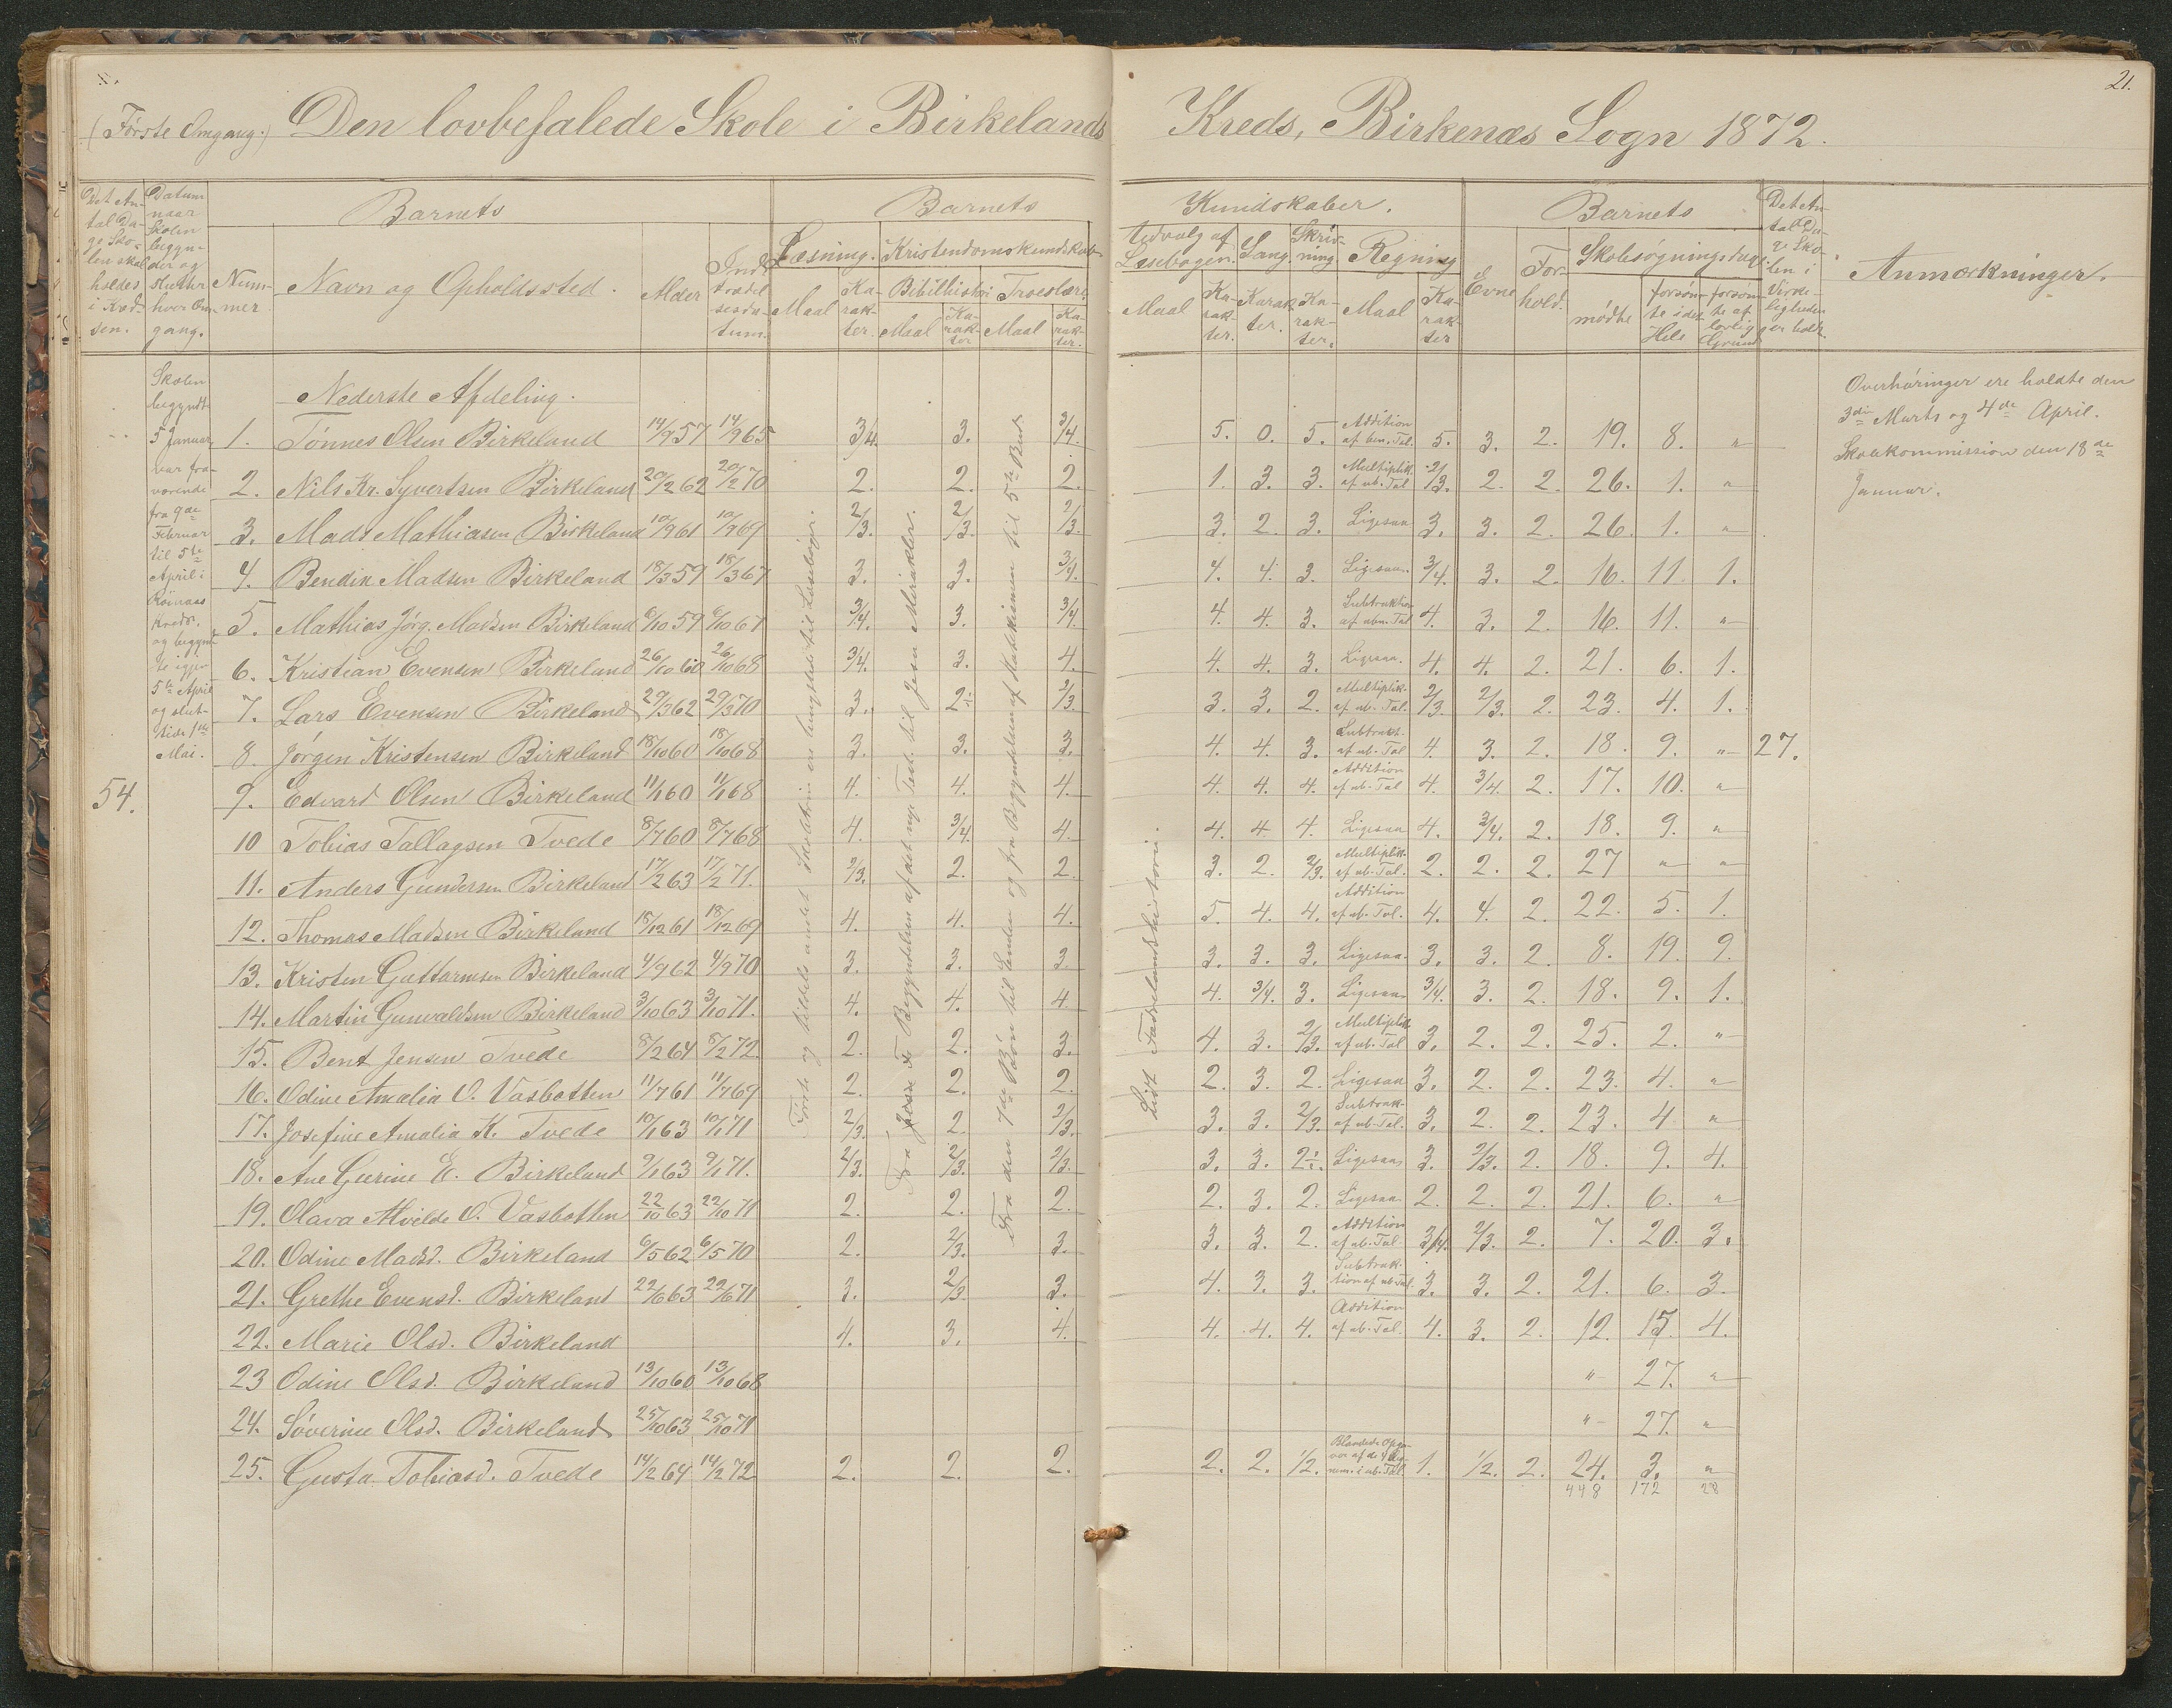 21.
(Første Omgang.) Den lovbefalede Skole i Birkelands Kreds, Birkenæs Sogn 1872.
Det Antal Dage Skolen skal holdes i Kredsen.
Datum naar Skolen begynder og slutter hver Omgang.
Barnets
Nummer
Navn og Opholdssted.
Alder
Indtrædelsesdatum.
Barnets Kundskaber.
Læsning. Kristendomskundskab
Maal Karakter.
Bibelhistori Troeslære
Maal Karakter Maal Karakter.
Udvalg af Læsebogen. Sang. Skrivning Regning
Maal Karakter. Karakter. Karakter. Maal Karakter
Barnets
Evne
Forhold.
Skolesøgningsdage.
mødte
forsømte i det Hele
forsømte af lovlig Grund
Det Antal Dage Skolen i Virkeligheden er holdt
Anmærkninger.
Skolen
begyndte
5 Januar
var fra-
værende
fra 9de
Februar
til 5te
April i
Kreds.
og begynd-
te igjen
5te April
og slut-
tede 1ste
Mai.
54.
Nederste Afdeling.
1. Tønnes Olsen Birkeland 14/9 57 14/9 65 3/4. 3. 3/4. 5. 0. 5. Addition af ben. Tal. 5. 3. 2. 19. 8. "
2. Nils Kr. Syvertsen Birkeland 20/2 62 20/2 70 2. 2. 2. 1. 3. 3. Multiplik. af ub. Tal 2/3. 2. 2. 26. 1. "
3. Mads Mathiasen Birkeland 10/9 61 10/9 69 2/3. 2/3. 2/3. 3. 2. 3. Ligesaa 3. 3. 2. 26. 1. "
4. Bendik Madsen Birkeland 18/3 59 18/3 67 3. 3. 3/4. 4. 4. 3. Ligesaa. 3/4. 3. 2. 16. 11. 1.
5. Mathias Jørg. Madsen Birkeland 6/10 59 6/10 67 3/4. 3. 3/4. 4. 4. 3. Subtraktion af ubn. Tal 4. 3. 2. 16. 11. "
6. Kristian Evensen Birkeland 26/10 60 26/10 68 3/4. 3. 4. 4. 4. 3. Ligesaa. 4. 4. 2. 21. 6. 1.
7. Lars Evensen Birkeland 29/3 62 29/3 70 3. 2÷ 2/3. 3. 3. 2. Multiplik. af ub. Tal. 2/3. 2/3. 2. 23. 4. 1.
8. Jørgen Kristensen Birkeland 18/10 60 18/10 68 3. 3. 3. 4. 4. 3. Subtrakt. af ub. Tal 4. 3. 2. 18. 9. " 27.
9. Edvard Olsen Birkeland 11/1 60 11/1 68 4. 4. 4. 4. 4. 4. Addition af ub. Tal 4. 3/4. 2. 17. 10. "
10 Tobias Tallagsen Tvede 8/7 60 8/7 68 4. 3/4. 4. 4. 4. 4. Ligesaa 4. 3/4. 2. 18. 9. "
11. Anders Gundersen Birkeland 17/2 63 17/2 71. 2/3. 2. 2. 3. 2. 2/3. Multiplik. af ub. Tal. 2. 2. 2. 27 " "
12. Thomas Madsen Birkeland 18/12 61 18/12 69 4. 4. 4. 5. 4. 4. Addition af ub. Tal. 4. 4. 2. 22. 5. 1.
13. Kristen Guttormsen Birkeland 4/9 62 4/9 70 3. 3. 3. 3. 3. 3. Ligesaa. 3. 3. 2. 8. 19. 9.
14. Martin Gunvaldsen Birkeland 3/10 63 3/10 71. 4. 4. 4. 4. 3/4. 3. Ligesaa 3/4. 3. 2. 18. 9. 1.
15. Bent Jensen Tvede 8/2 64 8/2 72 2. 2. 3. 4. 3. 2/3. Multiplik. af ub. Tal 3. 2. 2. 25. 2. "
16. Odine Amalia O. Vasbotten 11/7 61 11/7 69 2. 2. 2. 2. 3. 2. Ligesaa 3. 2. 2. 23. 4. "
17. Josefine Amalia K. Tvede 10/1 63 10/1 71 2/3. 2. 2/3. 3. 3. 2/3. Subtrak- af ub. Tal. 3. 2. 2. 23. 4 "
18. Ane Gurine E. Birkeland 9/1 63 9/1 71. 2/3. 2/3. 2/3. 3. 3. 2÷. Ligesaa 3. 2/3. 2. 18. 9. 4.
19. Olava Alvilde O. Vasbotten 22/10 63 22/10 71 2. 2. 2. 2. 3. 2. Ligesaa 2. 2. 2. 21. 6. "
20. Odine Madsd. Birkeland 6/5 62 6/5 70 2. 2/3. 3. 3. 3. 2. Addition af ub. Tal 3/4. 2/3. 2. 7. 20. 3.
21. Grethe Evensd. Birkeland 22/6 63 22/6 71 3. 2/3. 3. 4. 3. 3. Subtraktion af ub. Tal. 3. 3. 2. 21. 6. 3.
22. Marie Olsd. Birkeland 4. 3. 4. 4. 4. 4. Addition af ub. Tal. 4. 3. 2. 12. 15. 4.
23 Odine Olsd. Birkeland 13/10 60 13/10 68 " 27. "
24. Søverine Olsd. Birkeland 25/10 63 25/10 71 " 27. "
25. Gusta Tobiasd. Tvede 14/2 64 14/2 72 2. 2. 2. 2. 2. 1/2. Blandede af de 4 i ub. Tal. 1. 1/2. 2. 24. 3. "
448 172 28
Første og andet Skoletrin er til Læsebogen.
Fra Josva Begyndelsen af det nye Test. til Jesu Mirakler.
Fra den 7de Bøn til Enden og fra Begyndelsen af Katekismen til 5te Bud.
Lidt Fædrelandshistorie.
Overhøringer ere holdte den
3die Marts og 4de April.
Skolekommission den 18de
Januar.